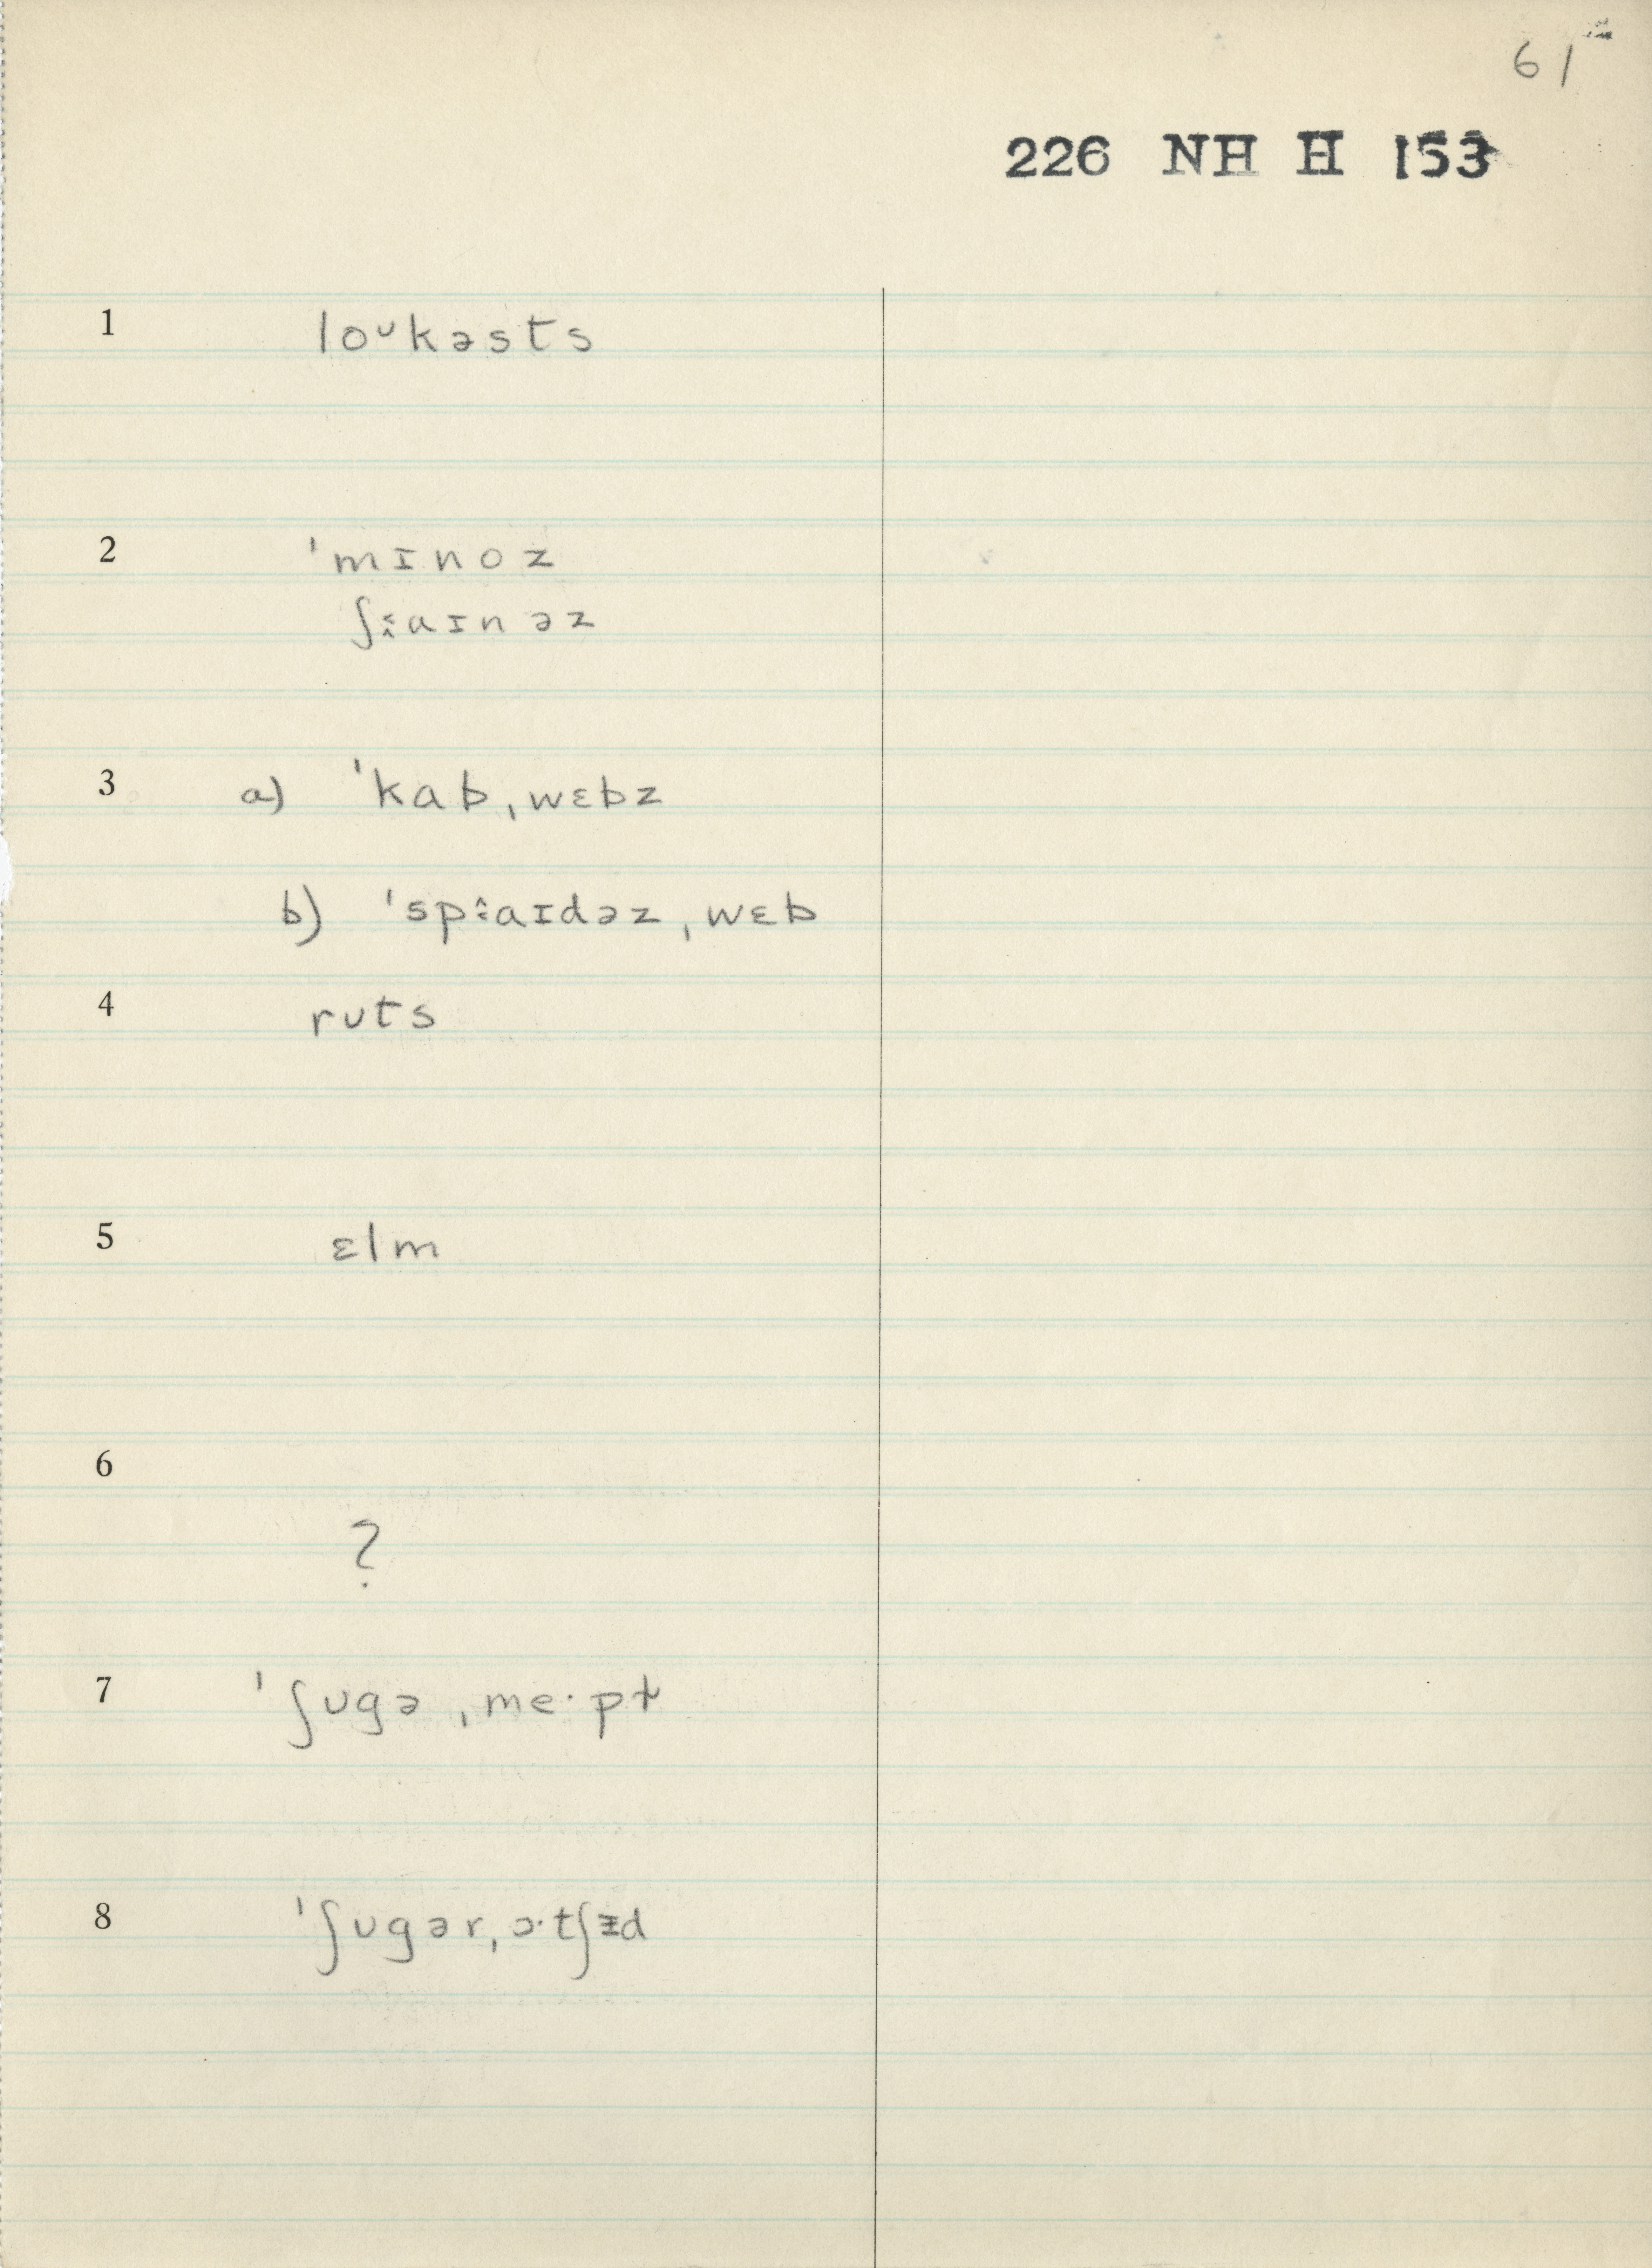 61
226 NH H 153
1 loᴜkəsts
2 ˈmɪnoz
ʃːaɪnəz
3 a) ˈkabˌwɛbz
b) ˈspːaɪdəzˌwɛb
4 rᴜts
5 ɛlm
6
?
7 ˈʃᴜgəˌmeˑpɫ
8 ˈʃᴜgərˌɔˑtʃᵻd